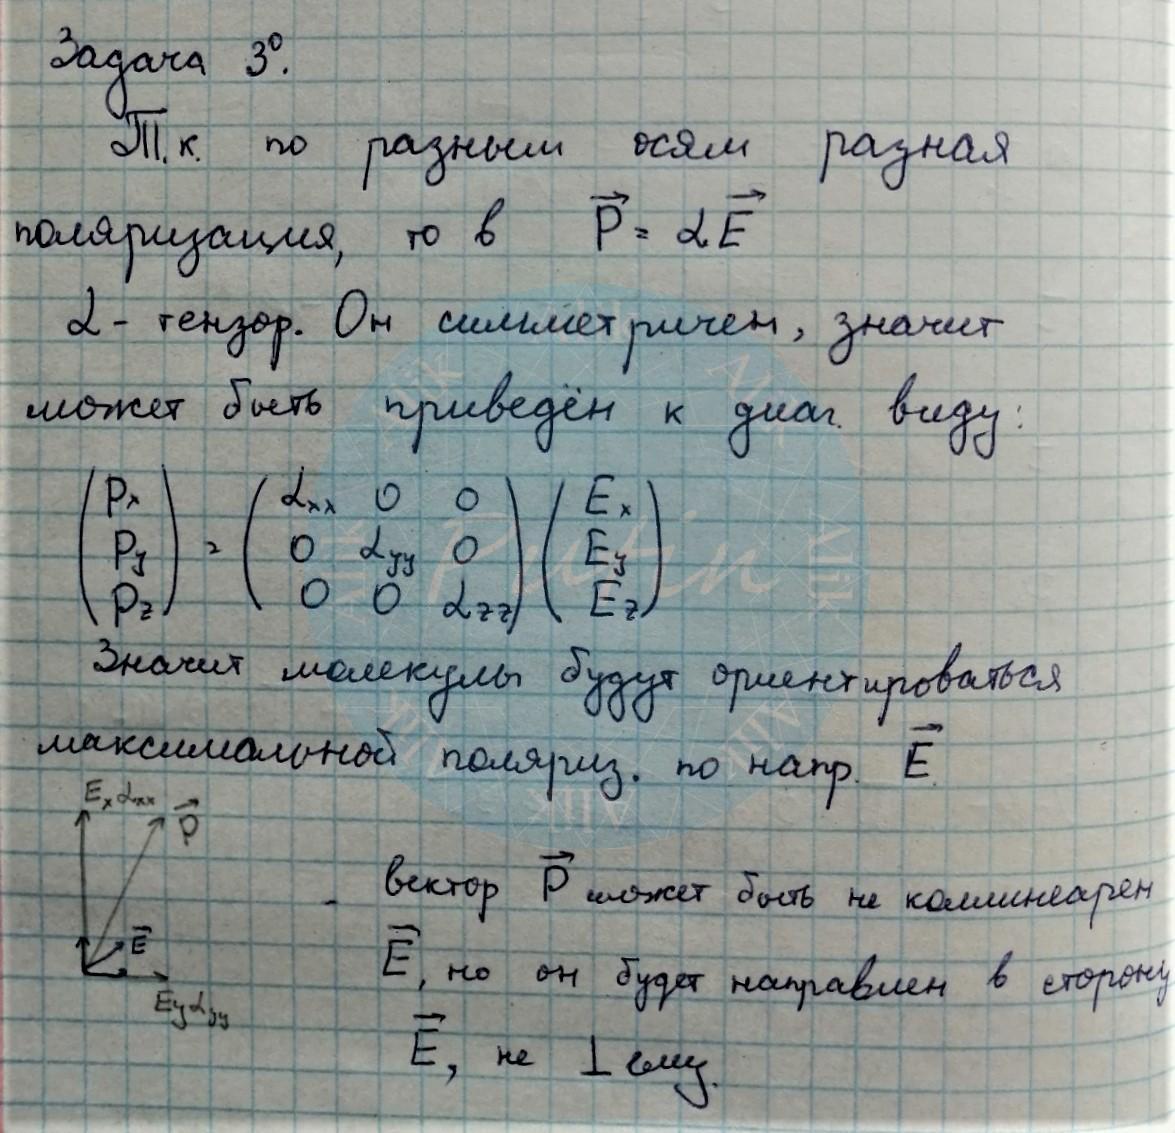 Задача 3⁰.
Т.к. по разным осям разная
поляризация, то в P⃗ = αE⃗
α - тензор. Он симметричен, значит
может быть приведён к диаг. виду:
(px) = (αxx 0 0) (Ex)
(py) = (0 αyy 0) (Ey)
(pz) = (0 0 αzz) (Ez)
Значит молекулы будут ориентироваться
максимальной поляриз. по напр. E⃗
Exαxx P⃗
E⃗
Eyαyy
- вектор P⃗ может быть не коллинеарен
E⃗, но он будет направлен в сторону
E⃗, не ⊥ ему.
Putin
AlJIk